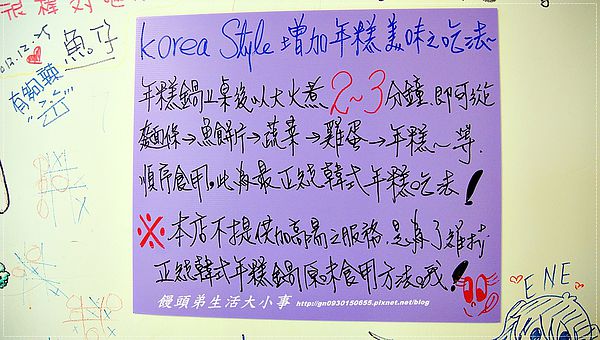 很棒
2012.12.25
魚仔
有夠讚
Korea Style 增加年糕美味之吃法~
年糕鍋上桌後以大火煮2~3分鐘,即可從
麵條→魚餅片→蔬菜→雞蛋→年糕~等.
順序食用,此為最正統韓式年糕吃法!
※本店不提供加高湯之服務,是為了維持
正統韓式年糕鍋原味食用方法。哦!
饅頭弟生活大小事 http://gn0930150655.pixnet.net/blog
ENE